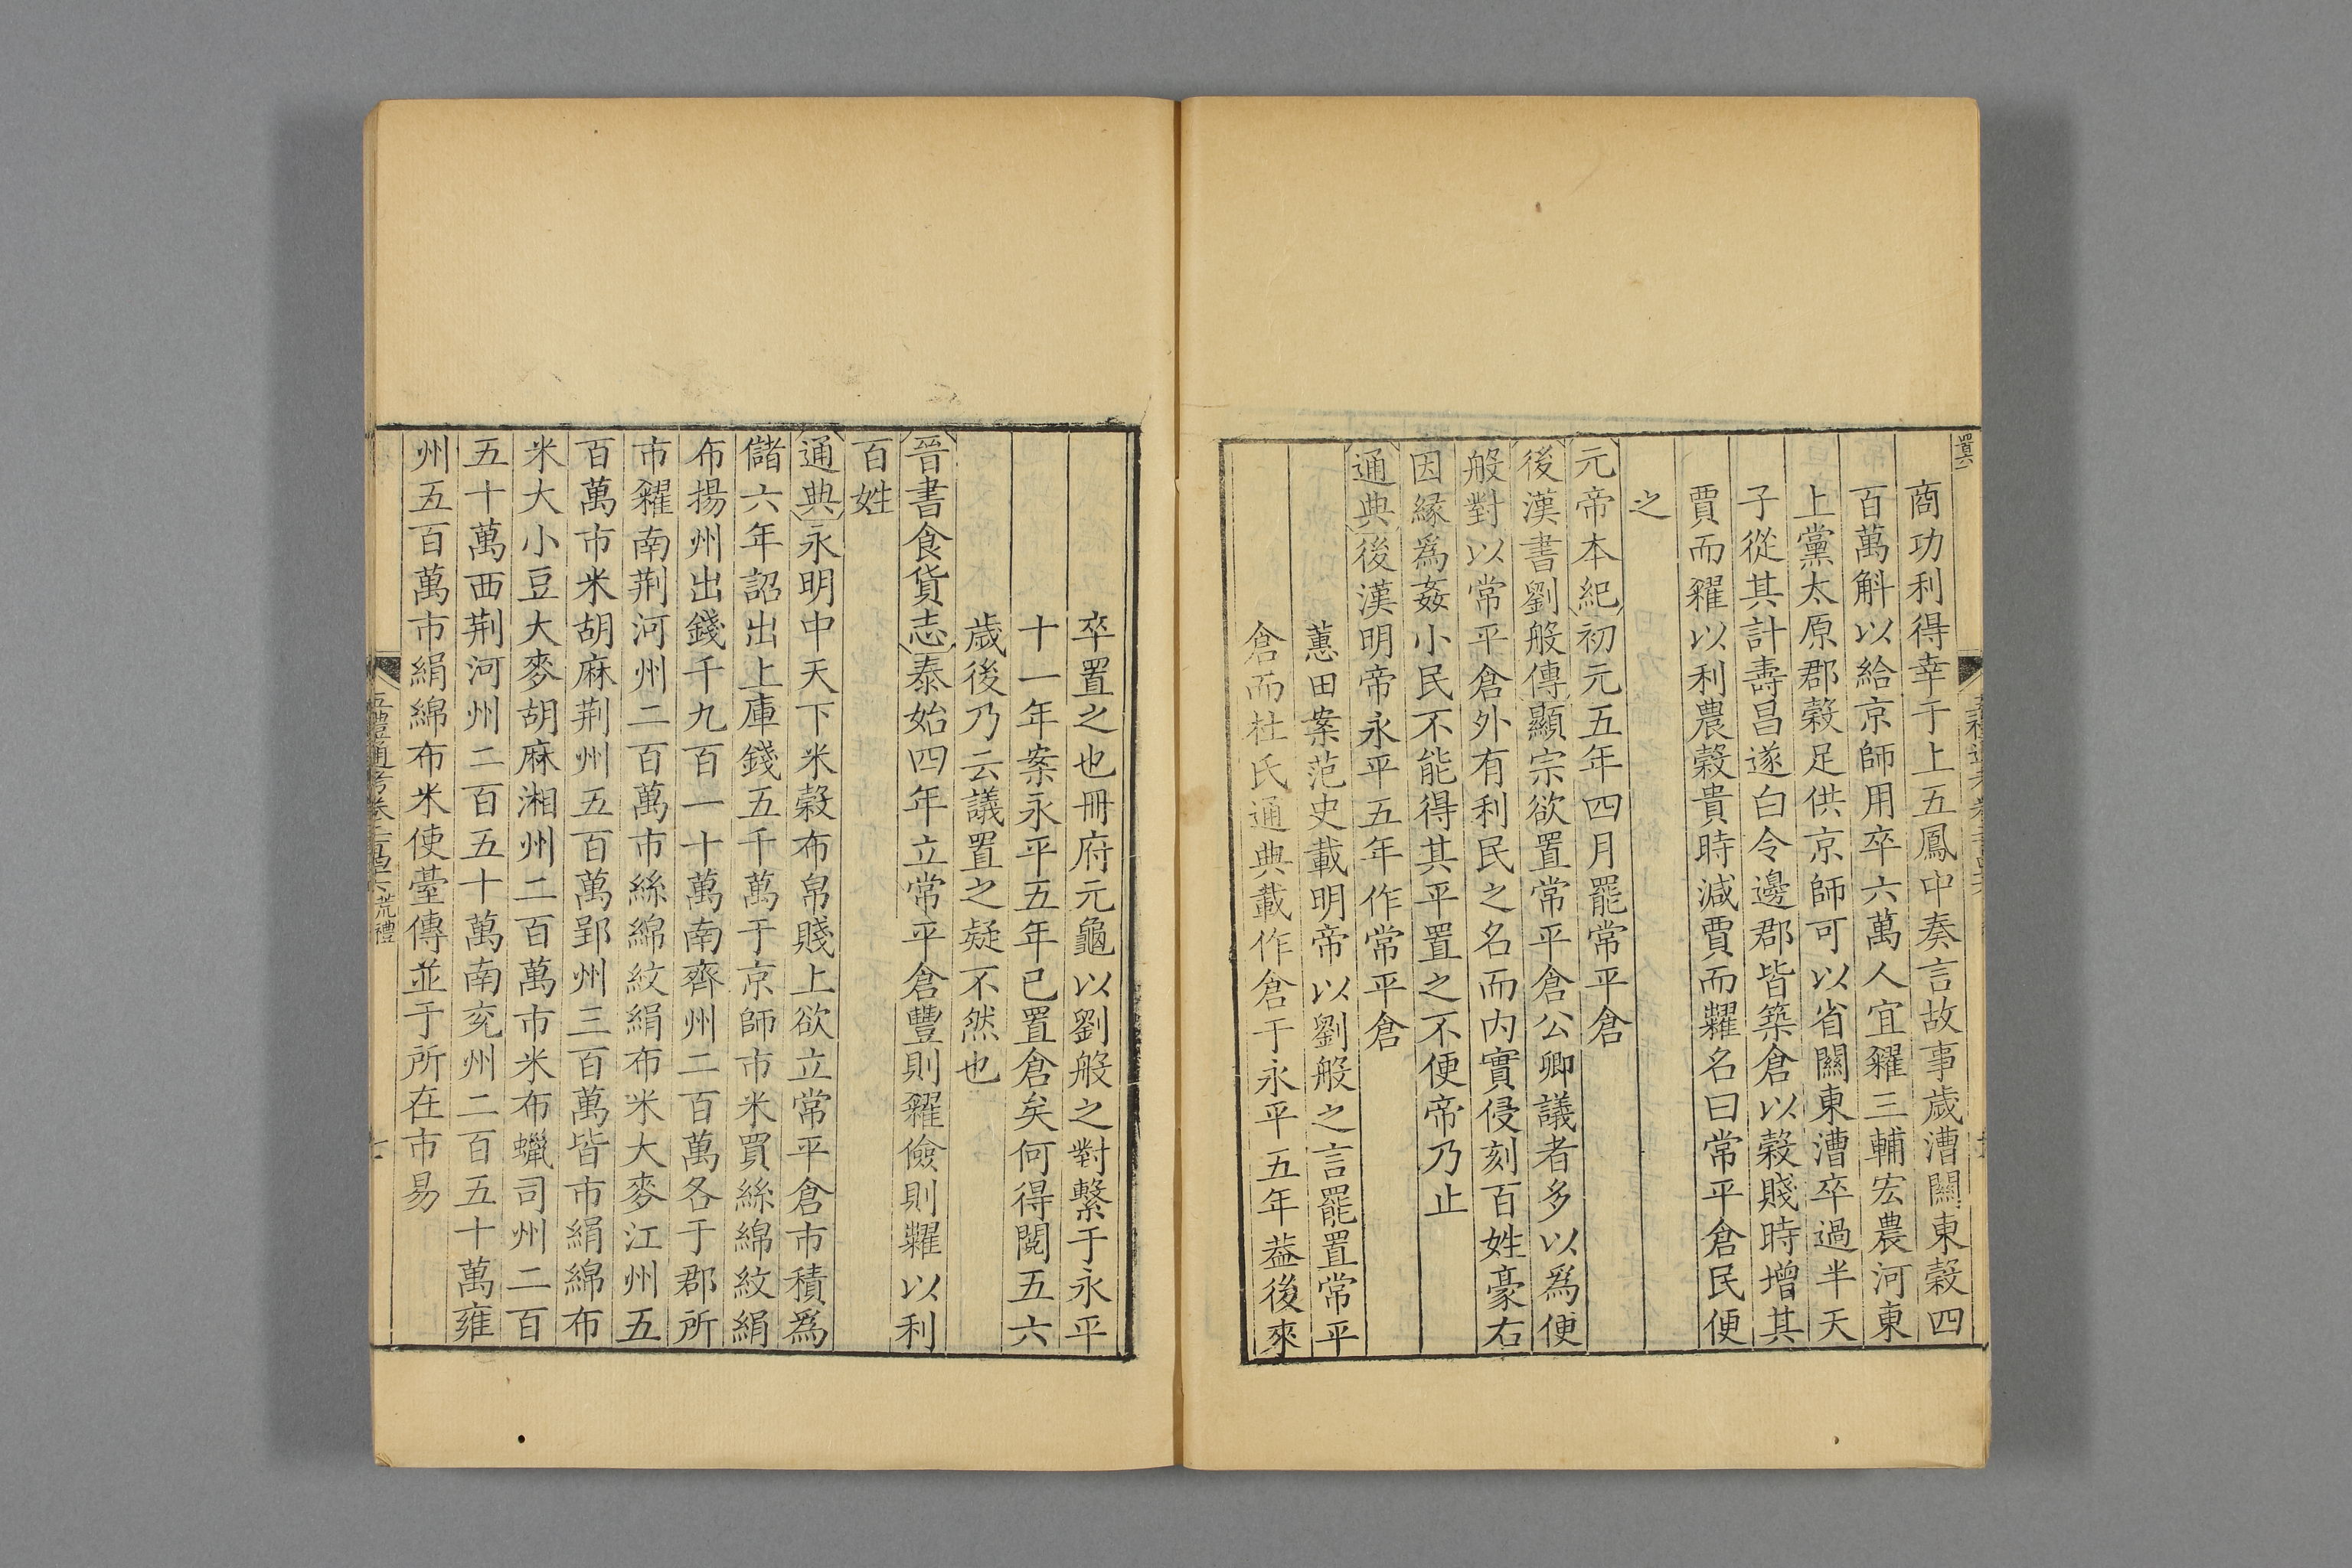 商功利得幸于上五鳳中奏言故事歲漕關東穀四
百萬斛以給京師用卒六萬人宜糴三輔宏農河東
上黨太原郡穀足供京師可以省關東漕卒過半天
子從其計壽昌遂白令邊郡皆築倉以穀賤時增其
賈而糴以利農穀貴時減賈而糶名曰常平倉民便
之
元帝本紀初元五年四月罷常平倉
後漢書劉般傳顯宗欲置常平倉公卿議者多以爲便
般對以常平倉外有利民之名而内實侵刻百姓豪右
因緣爲姦小民不能得其平置之不便帝乃止
通典後漢明帝永平五年作常平倉
蕙田案范史載明帝以劉般之言罷置常平
倉而杜氏通典載作倉于永平五年葢後來
卒置之也冊府元龜以劉般之對繫于永平
十一年案永平五年已置倉矣何得閱五六
歲後乃云議置之疑不然也
晉書食貨志泰始四年立常平倉豐則糴儉則糶以利
百姓
通典永明中天下米穀布帛賤上欲立常平倉市積爲
儲六年詔出上庫錢五千萬于京師市米買絲綿紋絹
布揚州出錢千九百一十萬南齊州二百萬各于郡所
市糴南荆河州二百萬市絲綿紋絹布米大麥江州五
百萬市米胡麻荆州五百萬郢州三百萬皆市絹綿布
米大小豆大麥胡麻湘州二百萬市米布蠟司州二百
五十萬西荆河州二百五十萬南兖州二百五十萬雍
州五百萬市絹綿布米使臺傳並于所在市易
五禮通考卷二百四十六 荒禮